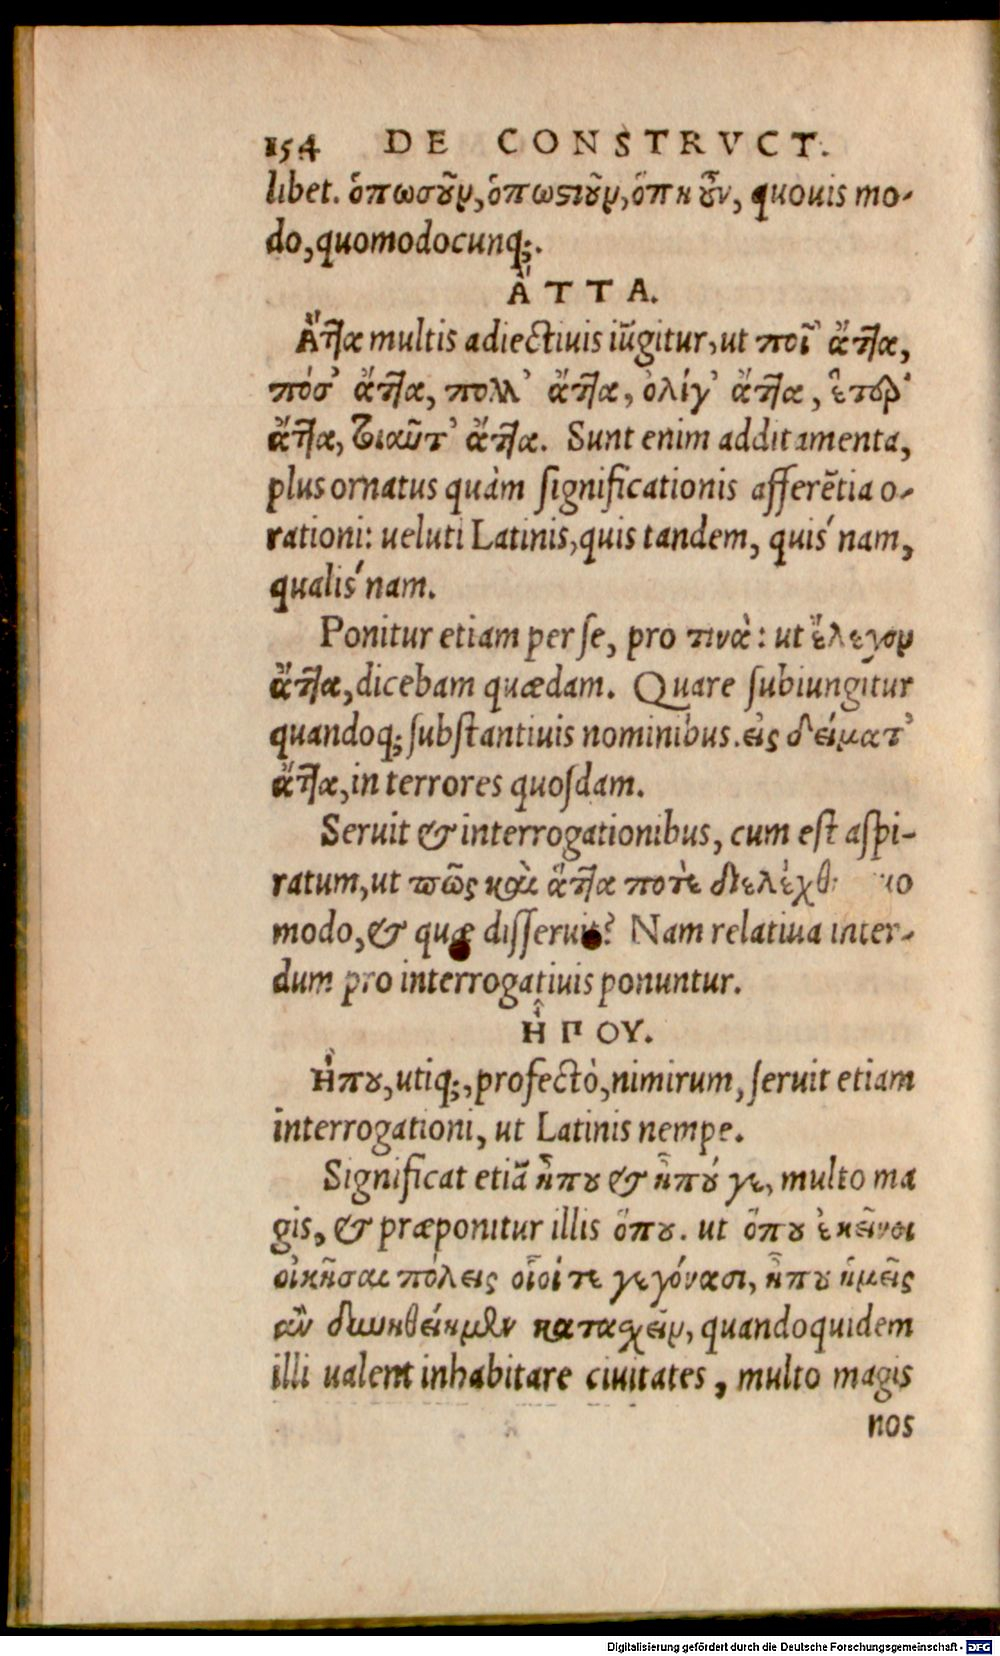 154 DE CONSTRVCT.
libet. ὁπωσοῦν, ὁπωστιοῦν, ὅπη οὖν, quouis mo-
do, quomodocunq;.
ἌΤΤΑ.
Ἄττα multis adiectiuis iũgitur, ut ποῖ' ἄττα,
πόσ' ἄττα, πολλ' ἄττα, ὀλίγ' ἄττα, ἕτερ'
ἄττα, τοιαῦτ' ἄττα. Sunt enim additamenta,
plus ornatus quàm ſignificationis afferẽtia o-
rationi: ueluti Latinis, quis tandem, quis´nam,
qualis´nam.
Ponitur etiam per ſe, pro τινὰ: ut ἔλεγον
ἄττα, dicebam quædam. Quare ſubiungitur
quandoq; ſubſtantiuis nominibus. εἰς δείματ'
ἄττα, in terrores quoſdam.
Seruit & interrogationibus, cum eſt aſpi-
ratum, ut πῶς καὶ ἅττα ποτὲ διελέχθ uo
modo, & quæ diſſeruit? Nam relatiua inter-
dum pro interrogatiuis ponuntur.
Ἦ ΠΟΥ.
Ἤπου, utiq;, profectò, nimirum, ſeruit etiam
interrogationi, ut Latinis nempe.
Significat etiã ἤπου & ἤπού γε, multo ma
gis, & præponitur illis ὅπου. ut ὅπου ἐκεῖνοι
οἰκῆσαι πόλεις οἷοί τε γεγόνασι, ἤπου ἡμεῖς
ἂν δυνηθείημεν κατασχεῖν, quandoquidem
illi ualent inhabitare ciuitates, multo magis
nos
Digitalisierung gefördert durch die Deutsche Forschungsgemeinschaft - DFG